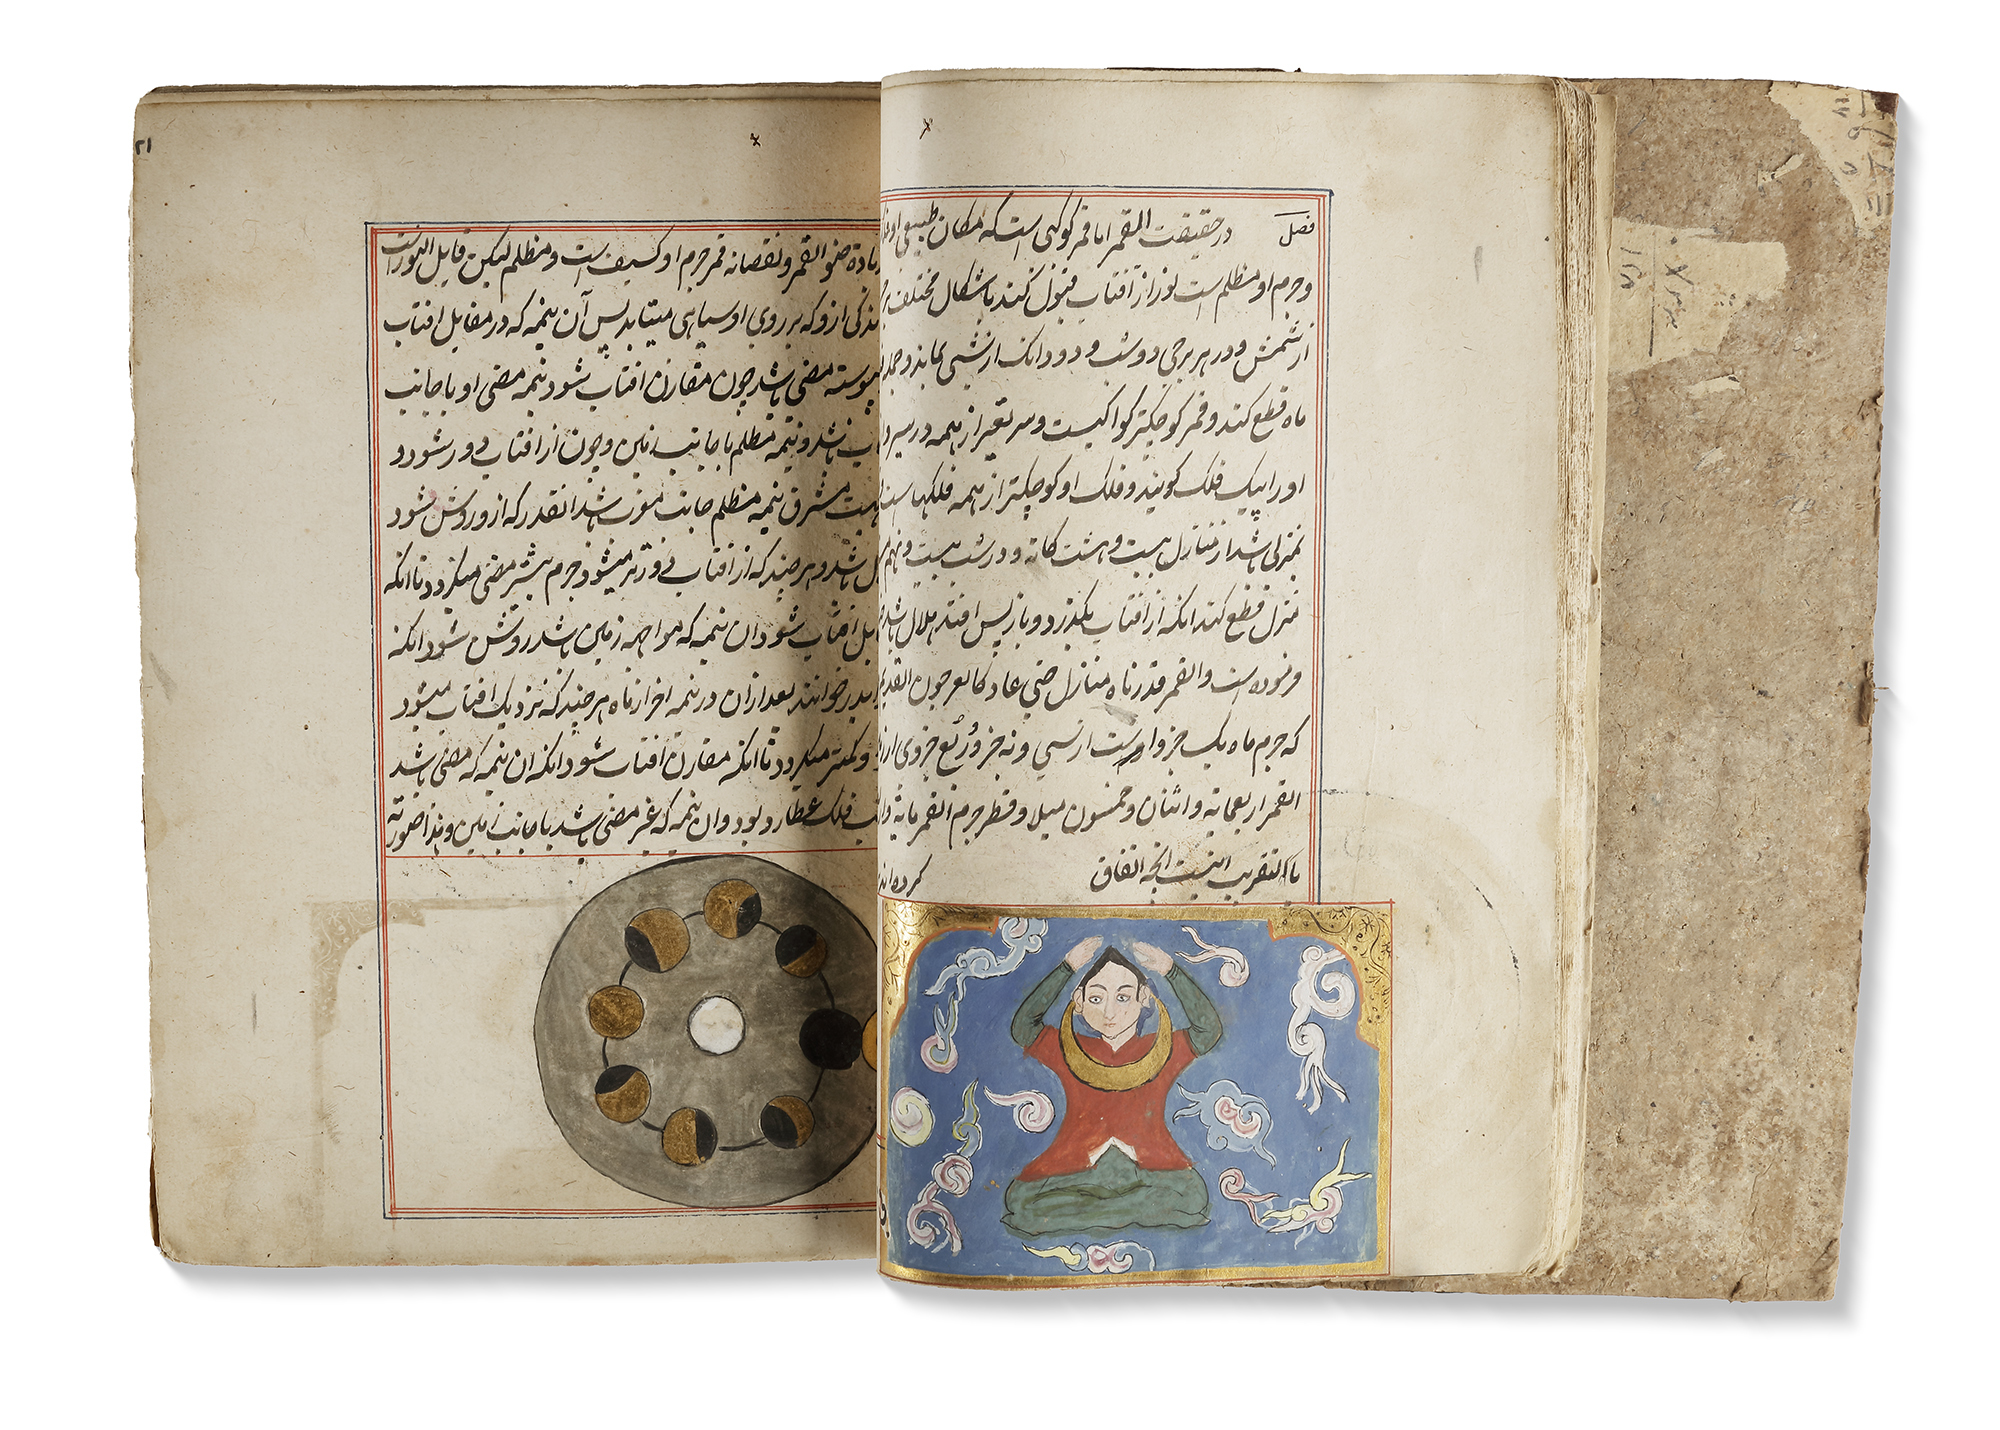 فصل در حقیقت القمر اما قمر کوکبی است که مکان طبیعی او
و جرم او مظلم است نور از آفتاب قبول کند باشکال مختلف
از شمس و در هر برجی دو شب و دو دانک از شبی بماند و جمله
ماه قطع کند و قمر کوچکتر کواکبست و سریعتر از همه در سیر
او را پیک فلک کویند و فلک او کوچکتر از همه فلکها است
بمنزلی باشد از منازل بیست و هشت کانه و در شب بیست و نهم
منزل قطع کند انکه از افتاب بکذرد و باز پس افتد هلال باشد
فرموده است والقمر قدرناه منازل حتی عاد کالعرجون القدیم
که جرم ماه یک جزو است از سی و نه جزو و ربع جزوی از
القمر اربعمایه و اثنان و خمسون میلا و قطر جرم القمر مایه
بالتقریب اینست انجه اتفاق کرده اند
۲۱
زیاده ضوء القمر و نقصانه قمر جرم او کسیف است و مظلم لیکن قابل النور است
اندکی از و که بر روی او سیاهی میتابد پس آن نیمه که در مقابل افتاب
پیوسته مضی باشد چون مقارن افتاب شود نیمه مضی او با جانب
باشد و نیمه مظلم با جانب زمین و چون از افتاب دور شود و
مشرق نیمه مظلم جانب مغرب باشد انقدر که از و روشن شود
باشد و هر چند که از افتاب دورتر میشود جرم بیشتر مضی میکردد تا انکه
افتاب شود ان نیمه که مواجهه زمین باشد روشن شود انکه
بدر خوانند بعد از ان در نیمه اخر از ماه هر چند که نزدیک افتاب میشود
و کمتر میکردد تا انکه مقارن افتاب شود انکه ان نیمه که مضی باشد
فلک عطارد بود و ان نیمه که غیر مضی باشد با جانب زمین و هذا صورته